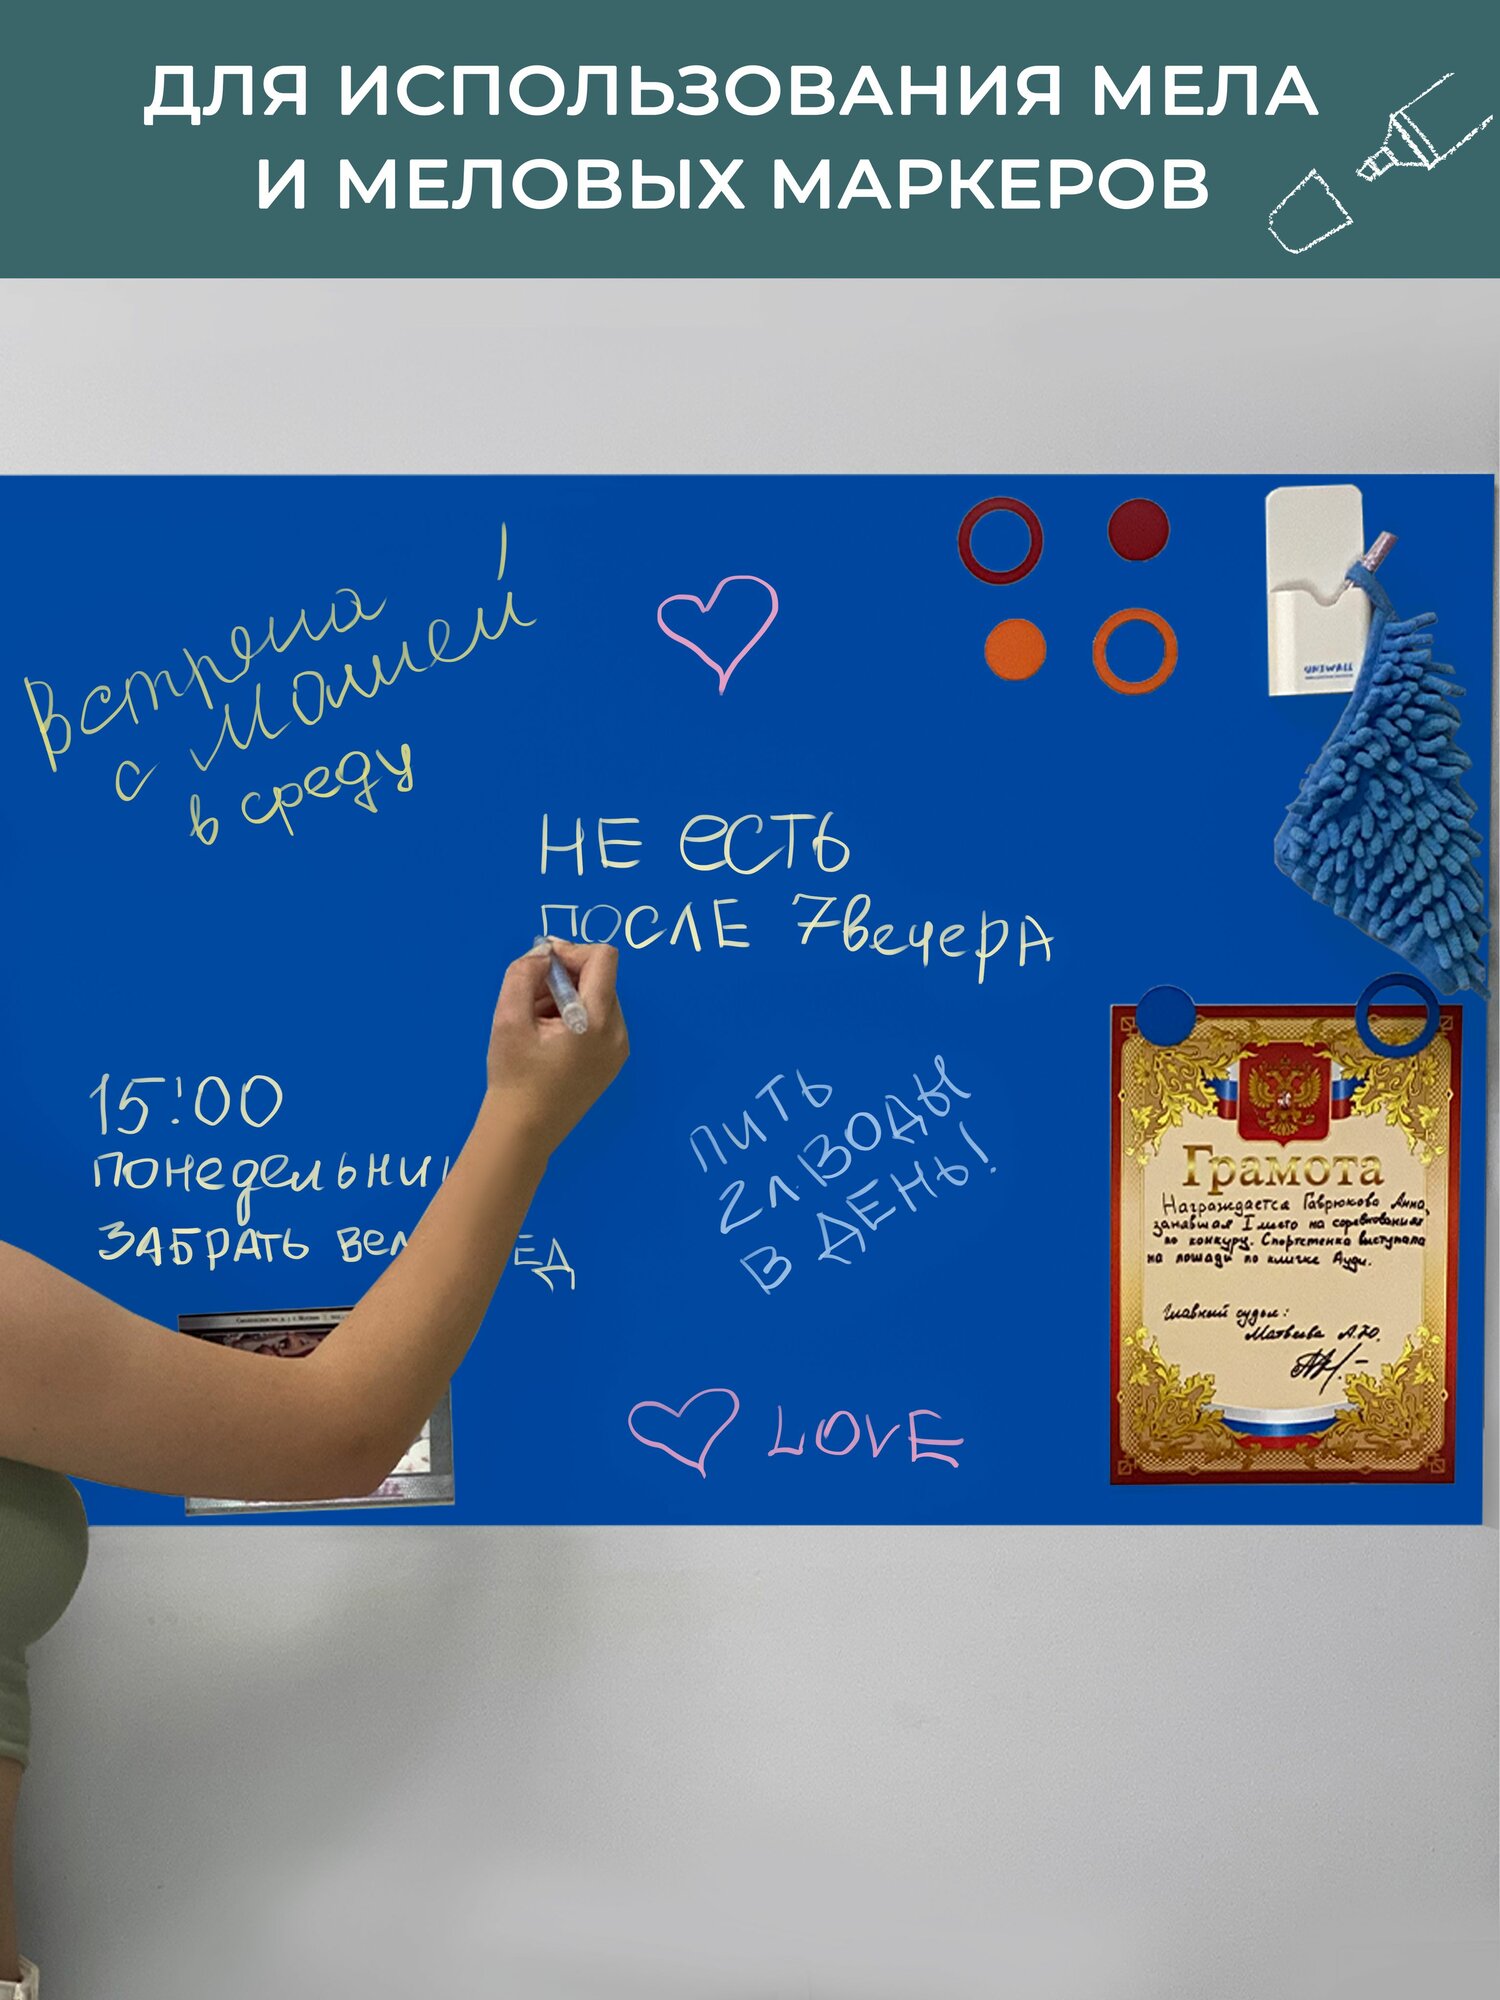 ДЛЯ ИСПОЛЬЗОВАНИЯ МЕЛА
И МЕЛОВЫХ МАРКЕРОВ
Встреча
с Машей
в среду
!
UNIWALL
НЕ есть
ПОСЛЕ 7 вечера
15:00
понедельник
ЗАБРАТЬ ВЕЛ ЕД
ПИТЬ
2 Л ВОДЫ
В ДЕНЬ!
LOVE
Грамота
Награждается Гаврюкова Анна,
занявшая I место на соревнованиях
по конкуру. Спортсменка выступала
на лошади по кличке Ауди.
Главный судья:
Матвеева А.Ю.